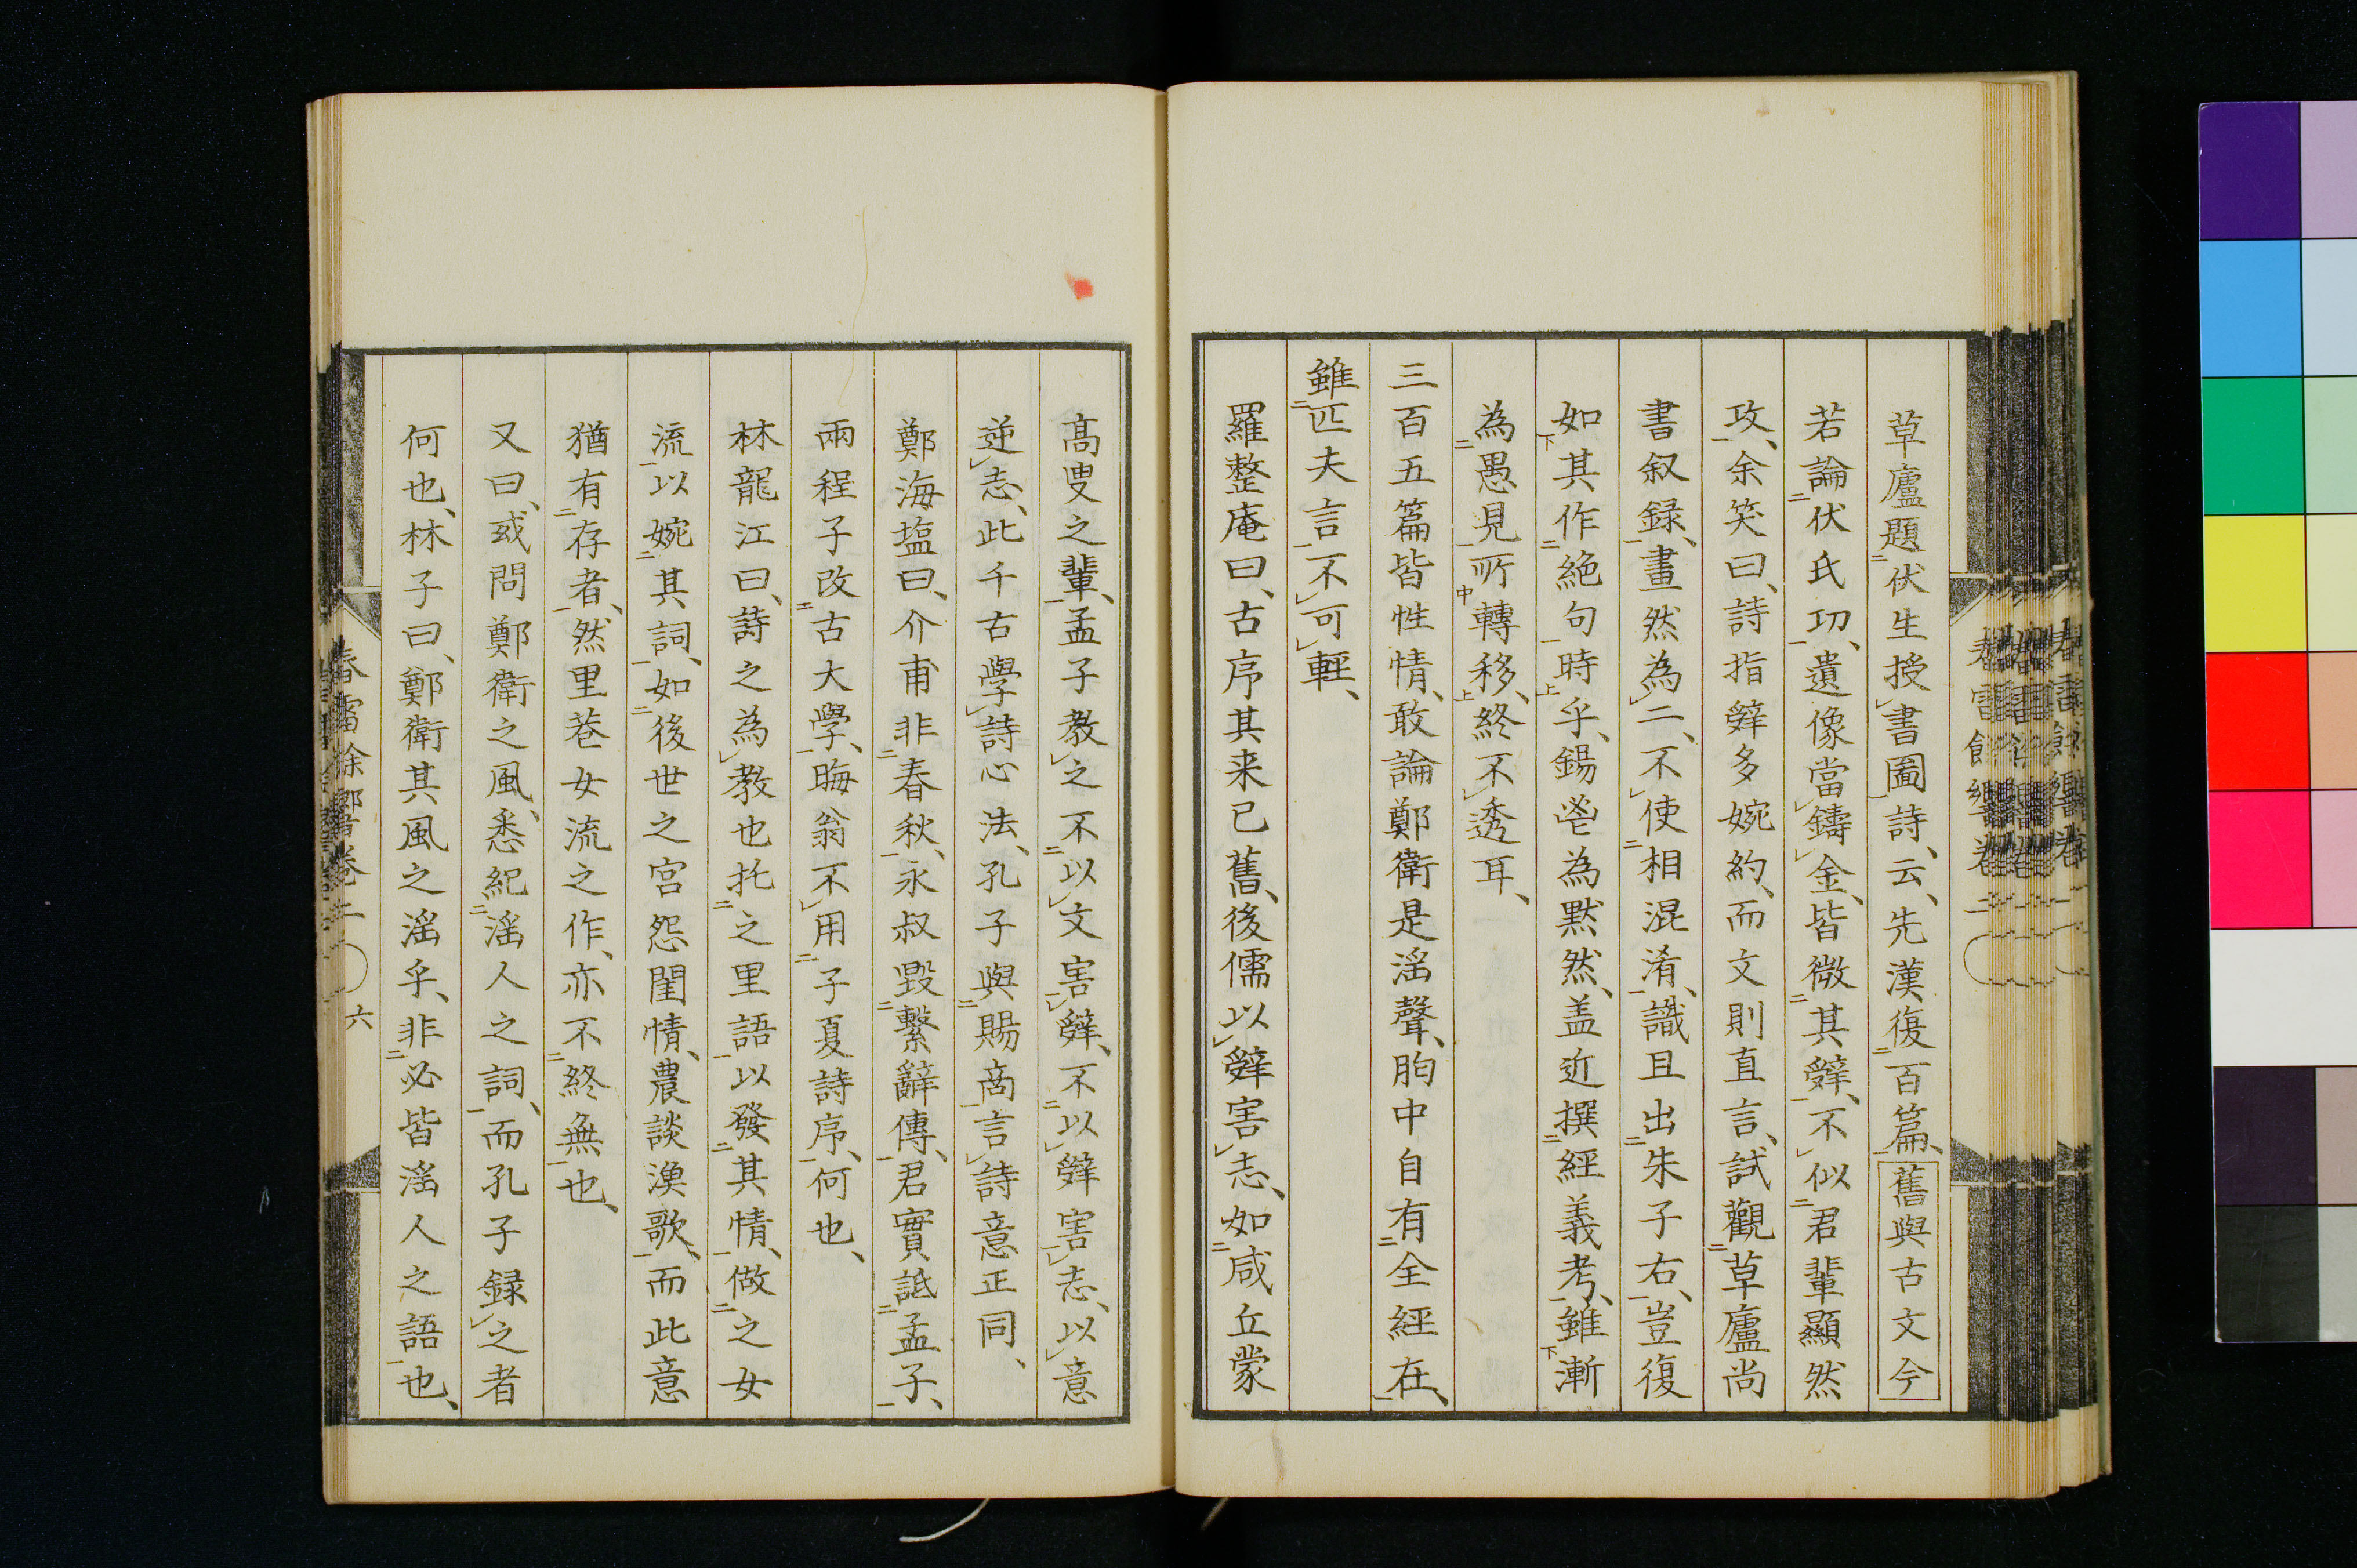 草廬題伏生授書圖詩、云、先漢復百篇、舊與古文今
若論伏氏功、遺像當鑄金、皆微其辤、不似君輩顯然
攻、余笑曰、詩指辤多婉約、而文則直言、試觀草廬尚
書叙録、畫然為二、不使相混淆、識且出朱子右、豈復
如其作絶句時乎、錫鬯為默然、盖近撰經義考、雖漸
為愚見所轉移、終不透耳、
三百五篇皆性情、敢論鄭衛是淫聲、胷中自有全經在、
雖匹夫言不可輕、
羅整庵曰、古序其来已舊、後儒以辤害志、如咸丘蒙
高叟之輩、孟子教之不以文害辤、不以辤害志、以意
逆志、此千古學詩心法、孔子與賜商言詩意正同、
鄭海塩曰、介甫非春秋、永叔毀繫辭傳、君實詆孟子、
兩程子改古大學、晦翁不用子夏詩序、何也、
林龍江曰、詩之為教也托之里語以發其情、做之女
流以婉其詞、如後世之宮怨閨情、農談漁歌、而此意
猶有存者、然里巷女流之作、亦不終無也、
又曰、或問鄭衛之風、悉紀淫人之詞、而孔子録之者
何也、林子曰、鄭衛其風之淫乎、非必皆淫人之語也、
春雷餘響卷二 六